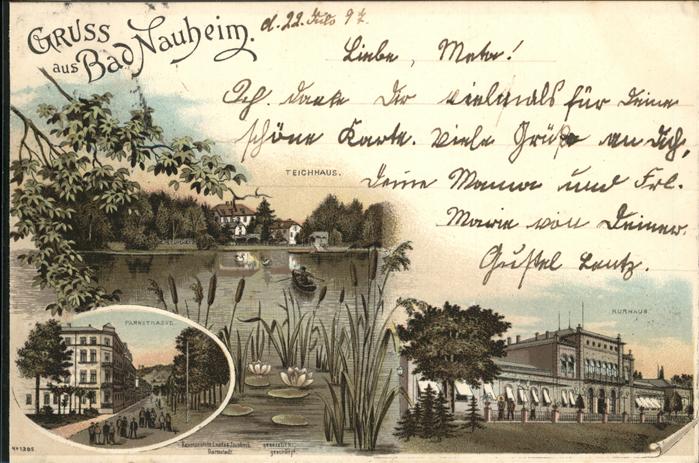 Gruss
aus Bad Nauheim.
d. 22. Juli 97.
Liebe, Meta!
Ich danke Dir vielmals für Deine
schöne Karte. Viele Grüße an Dich,
Deine Mama und Frl.
Marie von Deiner
Gustel Lentz.
TEICHHAUS.
PARKSTRASSE.
KURHAUS
gesetzlich
geschützt.
Darmstadt.
Nº 1205